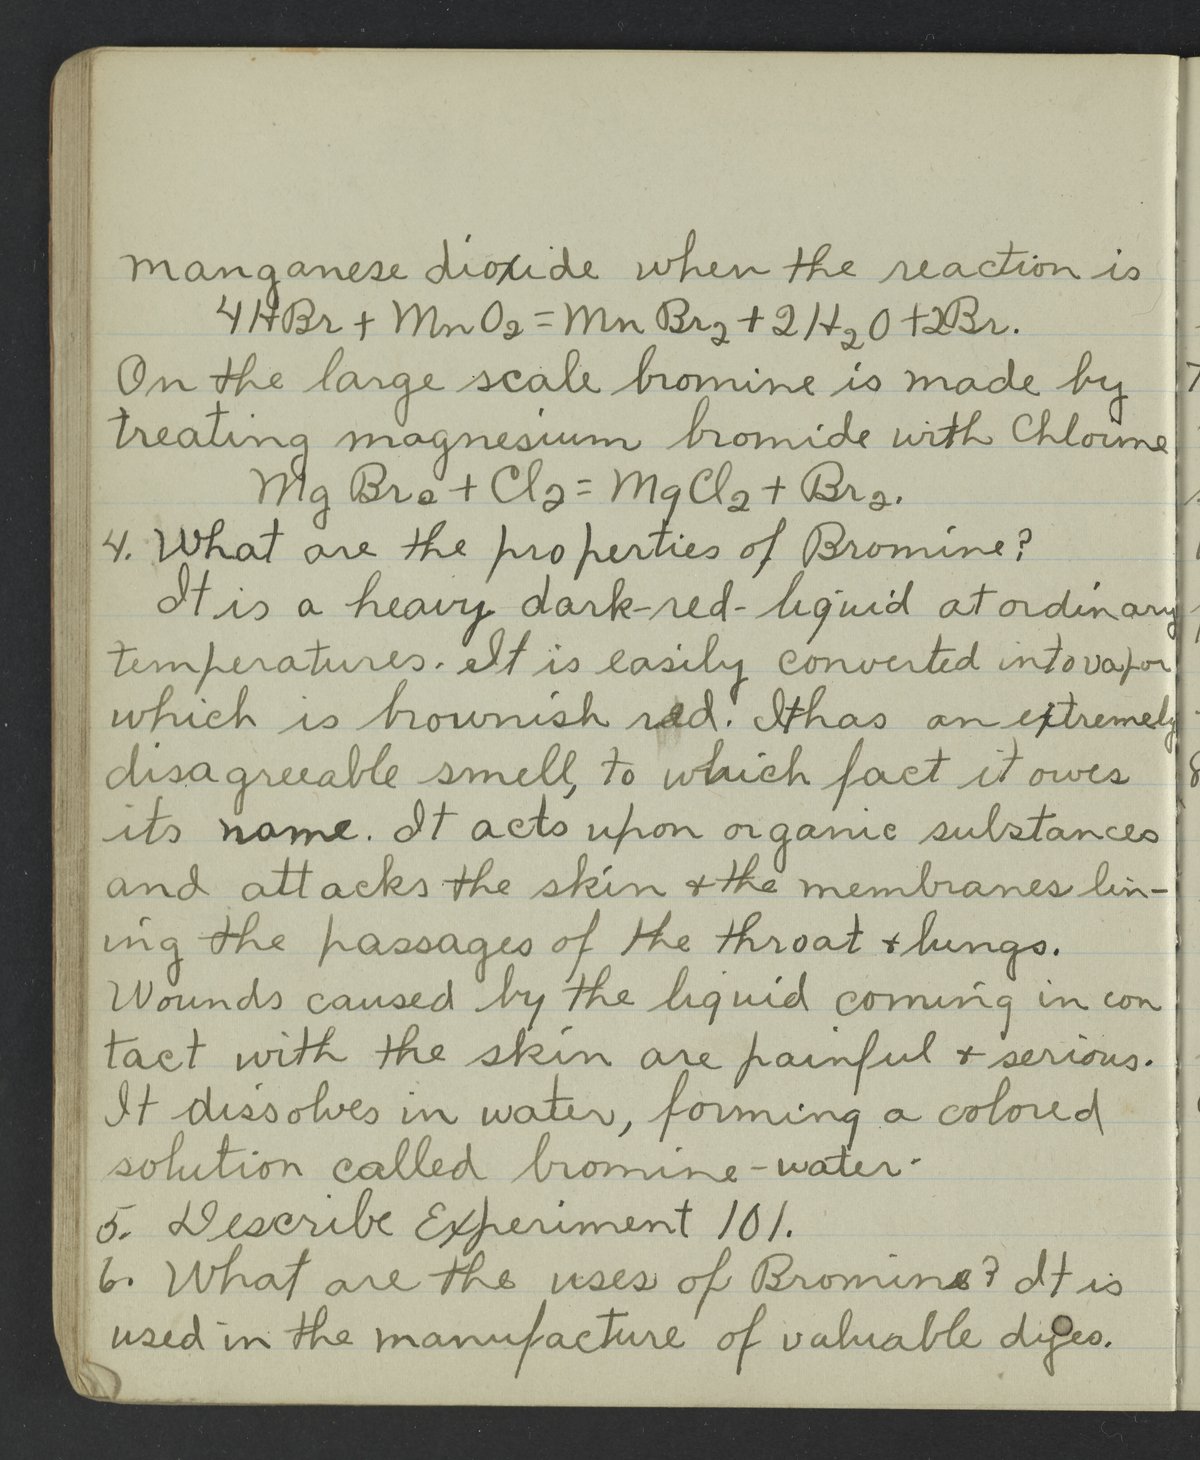 manganese dioxide when the reaction is
4HBr + MnO2 = MnBr2 + 2H2O + 2Br.
On the large scale bromine is made by
treating magnesium bromide with Chlorine
MgBr2 + Cl2 = MgCl2 + Br2.
4. What are the properties of Bromine?
It is a heavy dark-red-liquid at ordinary
temperatures. It is easily converted into vapor
which is brownish red. It has an extremely
disagreeable smell, to which fact it owes
its name. It acts upon organic substances
and attacks the skin & the membranes lin-
ing the passages of the throat & lungs.
Wounds caused by the liquid coming in con
tact with the skin are painful & serious.
It dissolves in water, forming a colored
solution called bromine-water.
5. Describe Experiment 101.
6. What are the uses of Bromine? It is
used in the manufacture of valuable dyes.